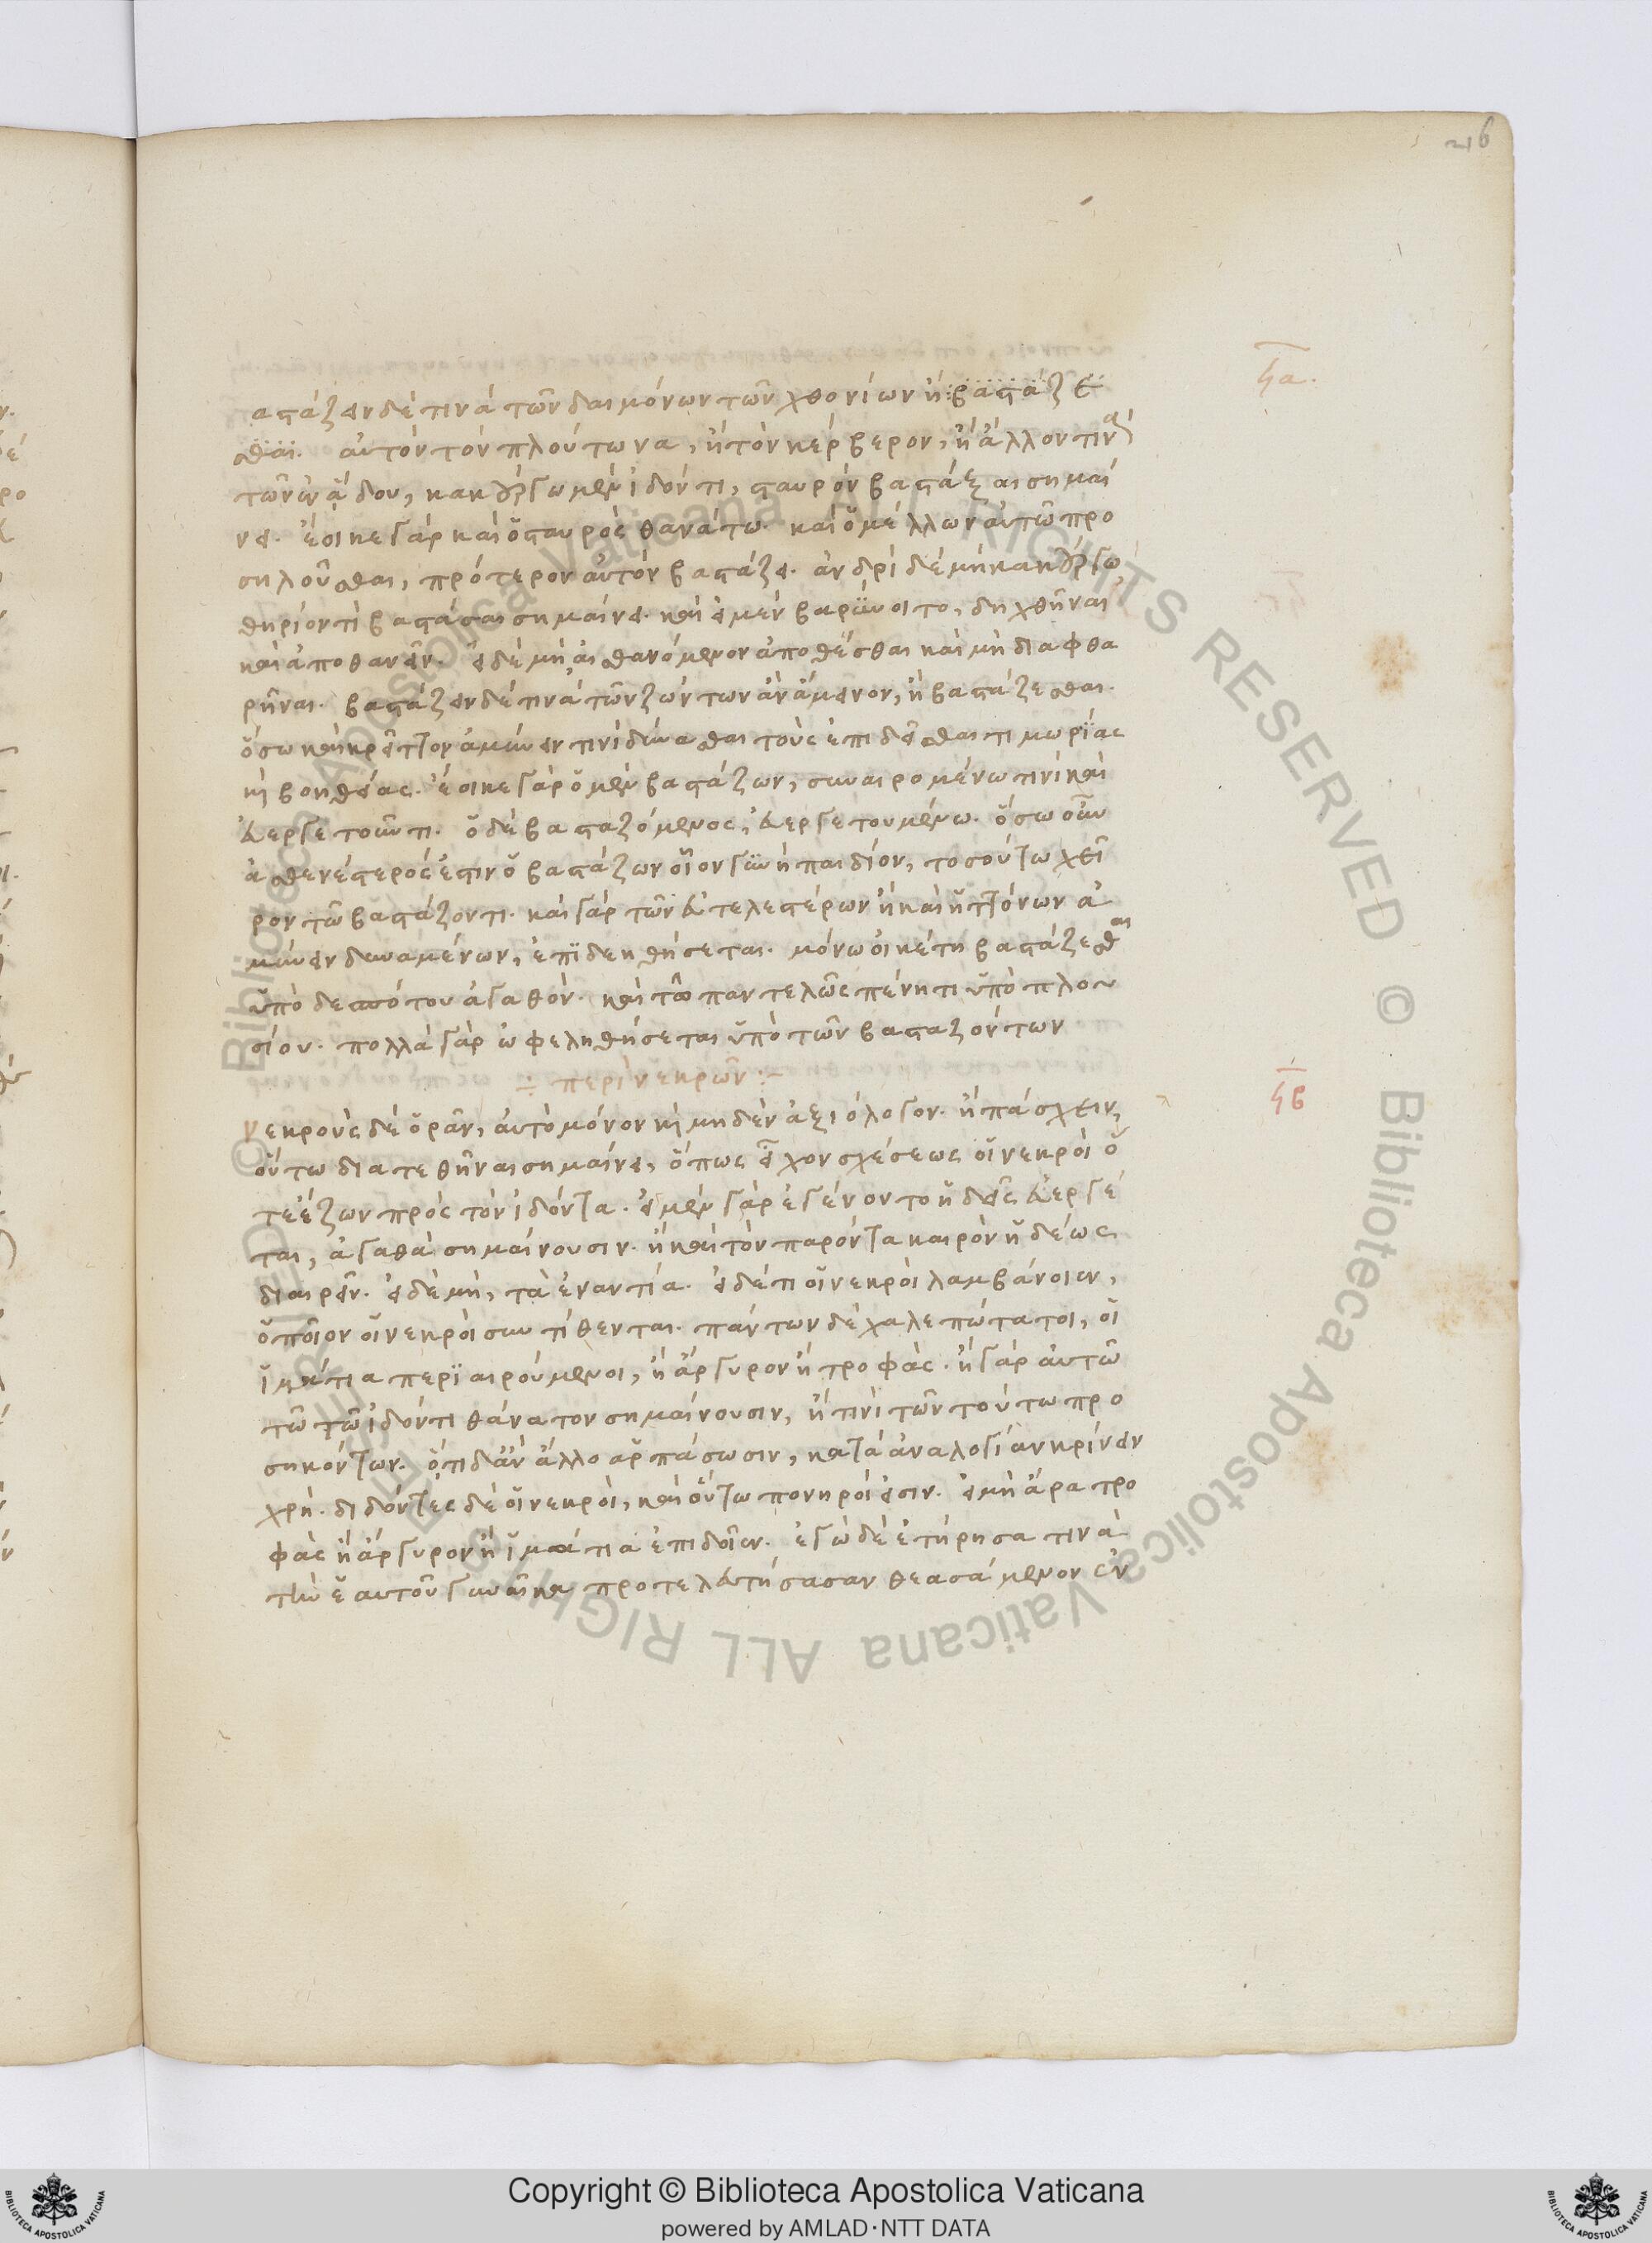 216
ϟα.
αστάζειν δέ τινα τῶν δαιμόνων τῶν χθονίων ἢ βαστάζε
σθαι. αὐτὸν τὸν πλούτωνα, ἢ τὸν κέρβερον, ἢ ἄλλον τινὰ
τῶν ἐν ἅδου, κακούργω μὲν ἰδόντι, σταυρὸν βαστάξαι σημαί
νει. ἔοικε γὰρ καὶ ὁ σταυρὸς θανάτω. καὶ ὁ μέλλων αὐτῶ προ
σηλοῦσθαι, πρότερον αὐτὸν βαστάζει. ἀνδρὶ δὲ μὴ κακούργω,
θηρίον τὶ βαστάσαι σημαίνει. καὶ εἰ μὲν βαρύνοιτο, δηχθῆναι
καὶ ἀποθανεῖν. εἰ δὲ μὴ, αἰσθανόμενον ἀποθέσθαι καὶ μὴ διαφθα
ρῆναι. βαστάζειν δέ τινα τῶν ζώντων ἀνάμεινον, ἢ βαστάζεσθαι.
ὅσω καὶ κρεῖττον ἀμύνειν τινὶ δύνασθαι τοὺς ἐπιδεῖσθαι τιμωρίας
κὶ βοηθείας. ἔοικε γὰρ ὁ μὲν βαστάζων, συναιρομένω τινὶ καὶ
εὐεργετοῦντι. ὁ δὲ βασταζόμενος, εὐεργετουμένω. ὅσω οὖν
ἀσθενέστερός ἐστιν ὁ βαστάζων οἷον γυνὴ παιδίον, τοσούτω χεῖ
ρον τῶ βαστάζοντι. καὶ γὰρ τῶν εὐτελεστέρων ἢ καὶ ἡττόνων ἀ
μύνειν δυναμένων, ἐπιδεηθήσεται. μόνω οἰκέτη βαστάζεσθαι
ὑπὸ δεσπότου ἀγαθόν. καὶ τῶ παντελῶς πένητι ὑπὸ πλου
σίου. πολλὰ γὰρ ὠφεληθήσεται ὑπὸ τῶν βασταζόντων
÷ περὶ νεκρῶν :-
ϟβ
νεκροὺς δὲ ὁρᾶν, αὐτὸ μόνον κὶ μηδὲν ἀξιόλογον. ἢ πάσχειν,
οὕτω διατεθῆναι σημαίνει, ὅπως εἶχον σχέσεως οἱ νεκροὶ ὅ
τε ἔζων πρὸς τὸν ἰδόντα. εἰ μὲν γὰρ ἐγένοντο ἡδεῖς εὐεργέ
ται, ἀγαθὰ σημαίνουσιν. ἢ καὶ τὸν παρόντα καιρὸν ἡδέως
διαιρεῖν. εἰ δὲ μὴ, τὰ ἐναντία. εἰ δέ τι οἱ νεκροὶ λαμβάνοιεν,
ὁποῖον οἱ νεκροὶ συντίθενται. πάντων δὲ χαλεπώτατοι, οἱ
ἱμάτια περιαιρούμενοι, ἢ ἄργυρον ἢ τροφάς. ἢ γὰρ αὐτῶ
τῶ τῶ ἰδόντι θάνατον σημαίνουσιν, ἢ τινὶ τῶν τούτω προ
σηκόντων. ὅτι δἂν ἄλλο ἁρπάσωσιν, κατὰ ἀναλογίαν κρίνειν
χρή. διδόντες δὲ οἱ νεκροὶ, καὶ οὕτω πονηροὶ εἰσιν. εἰ μὴ ἄρα τρο
φὰς ἢ ἄργυρον ἢ ἱμάτια ἐπιδοῖεν. ἐγὼ δὲ ἐτήρησά τινα
τὴν ἑαυτοῦ γυναῖκα προτελευτήσασαν θεασάμενον ἐν